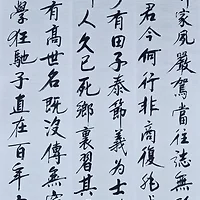 家夙嚴駕當往志無
君今何行非商復非
有田子泰節義為士
人久已死鄉裏習其
有高世名既沒傳無
學狂馳子直在百年